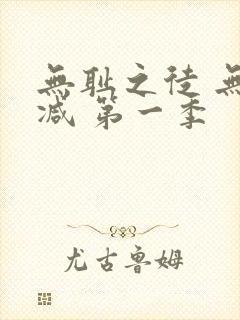 無耻之徒 無
減 第一季
尤古魯姆